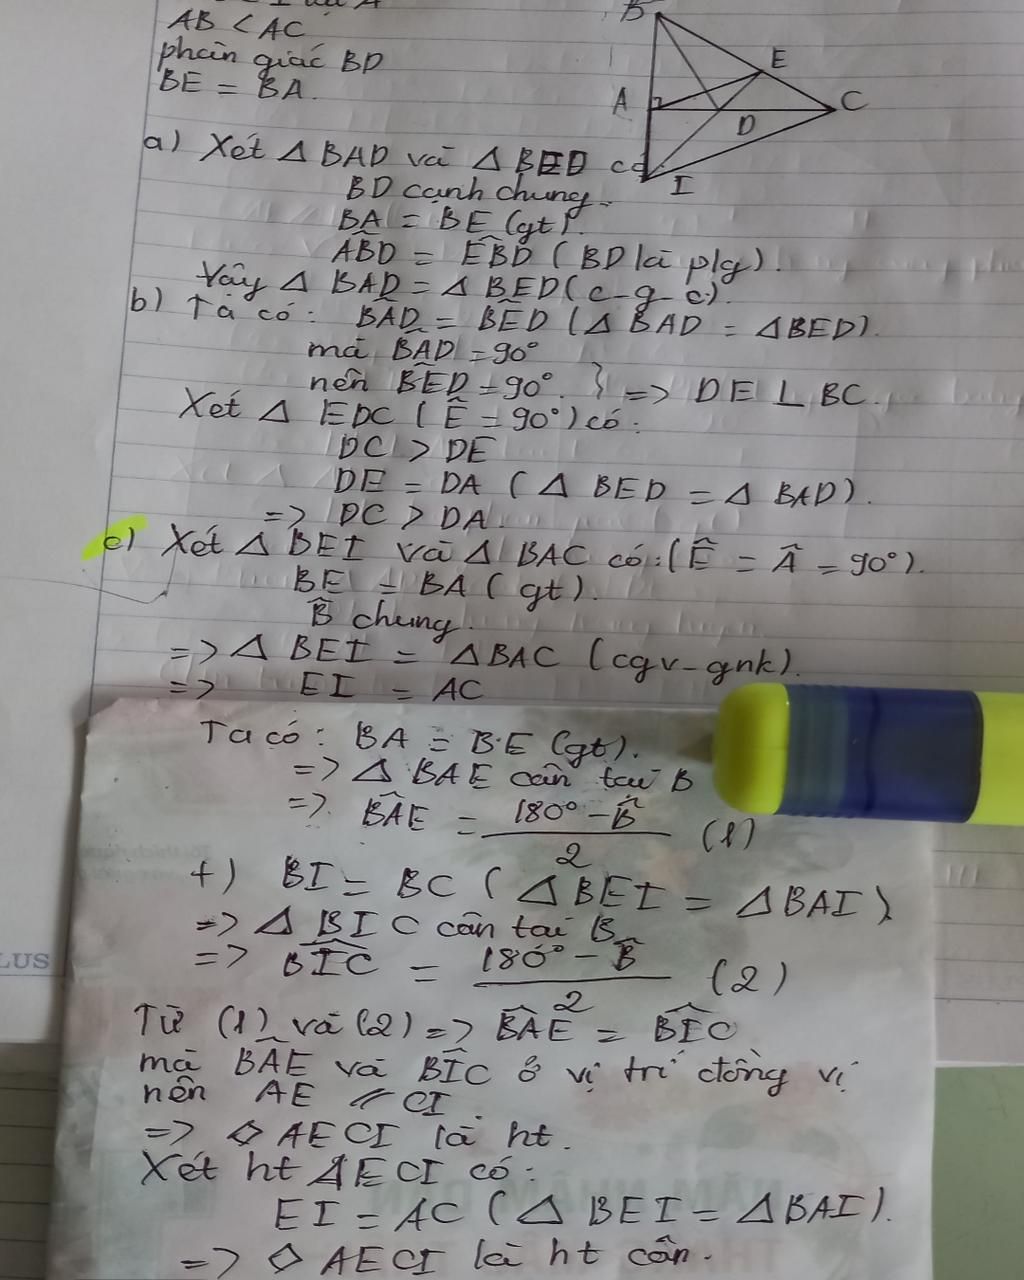 AB < AC
phân giác BD
BE = BA.
B
E
A
C
D
I
a) Xét Δ BAD và Δ BED có
BD cạnh chung.
BA = BE (gt).
ABD̂ = EBD̂ (BD là p/g).
Vậy Δ BAD = Δ BED (c-g-c).
b) Ta có: BAD̂ = BED̂ (Δ BAD = ΔBED).
mà BAD̂ = 90°
nên BED̂ = 90°. } => DE ⊥ BC.
Xét Δ EDC (Ê = 90°) có:
DC > DE
DE = DA (Δ BED = Δ BAD).
=> DC > DA.
c) Xét Δ BEI và Δ BAC có: (Ê = Â = 90°).
BE = BA (gt).
B̂ chung.
=> Δ BEI = ΔBAC (cgv-gnk).
=> EI = AC
Ta có: BA = BE (gt).
=> Δ BAE cân tại B
=> BÂE = (180° - B̂)/2 (1)
+) BI = BC (ΔBEI = ΔBAI)
=> Δ BIC cân tại B
=> BIĈ = (180° - B̂)/2 (2)
Từ (1) và (2) => BÂE = BÎC
mà BÂE và BÎC ở vị trí đồng vị
nên AE // CI.
=> ◇ AECI là ht.
Xét ht AECI có:
EI = AC (Δ BEI = ΔBAI).
=> ◇ AECI là ht cân.